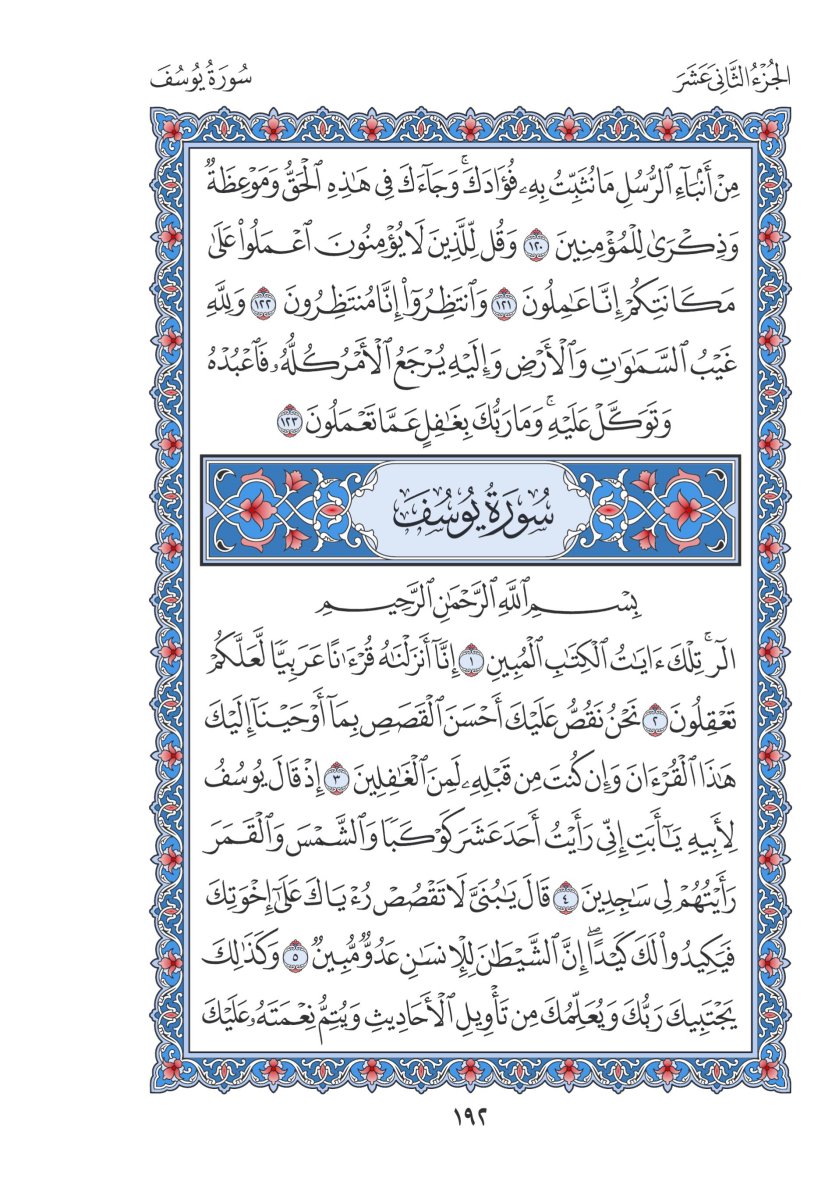 الجُزْءُ الثَّانِيَ عَشَرَ
سُورَةُ يُوسُفَ
مِنْ أَنۢبَآءِ ٱلرُّسُلِ مَا نُثَبِّتُ بِهِۦ فُؤَادَكَۚ وَجَآءَكَ فِي هَٰذِهِ ٱلْحَقُّ وَمَوْعِظَةٌ
وَذِكْرَىٰ لِلْمُؤْمِنِينَ ١٢٠ وَقُل لِّلَّذِينَ لَا يُؤْمِنُونَ ٱعْمَلُوا۟ عَلَىٰ
مَكَانَتِكُمْ إِنَّا عَٰمِلُونَ ١٢١ وَٱنتَظِرُوٓا۟ إِنَّا مُنتَظِرُونَ ١٢٢ وَلِلَّهِ
غَيْبُ ٱلسَّمَٰوَٰتِ وَٱلْأَرْضِ وَإِلَيْهِ يُرْجَعُ ٱلْأَمْرُ كُلُّهُۥ فَٱعْبُدْهُ
وَتَوَكَّلْ عَلَيْهِۚ وَمَا رَبُّكَ بِغَٰفِلٍ عَمَّا تَعْمَلُونَ ١٢٣
سُورَةُ يُوسُفَ
بِسْمِ ٱللَّهِ ٱلرَّحْمَٰنِ ٱلرَّحِيمِ
الٓرۚ تِلْكَ ءَايَٰتُ ٱلْكِتَٰبِ ٱلْمُبِينِ ١ إِنَّآ أَنزَلْنَٰهُ قُرْءَٰنًا عَرَبِيًّا لَّعَلَّكُمْ
تَعْقِلُونَ ٢ نَحْنُ نَقُصُّ عَلَيْكَ أَحْسَنَ ٱلْقَصَصِ بِمَآ أَوْحَيْنَآ إِلَيْكَ
هَٰذَا ٱلْقُرْءَانَ وَإِن كُنتَ مِن قَبْلِهِۦ لَمِنَ ٱلْغَٰفِلِينَ ٣ إِذْ قَالَ يُوسُفُ
لِأَبِيهِ يَٰٓأَبَتِ إِنِّي رَأَيْتُ أَحَدَ عَشَرَ كَوْكَبًا وَٱلشَّمْسَ وَٱلْقَمَرَ
رَأَيْتُهُمْ لِي سَٰجِدِينَ ٤ قَالَ يَٰبُنَيَّ لَا تَقْصُصْ رُءْيَاكَ عَلَىٰٓ إِخْوَتِكَ
فَيَكِيدُوا۟ لَكَ كَيْدًاۖ إِنَّ ٱلشَّيْطَٰنَ لِلْإِنسَٰنِ عَدُوٌّ مُّبِينٌ ٥ وَكَذَٰلِكَ
يَجْتَبِيكَ رَبُّكَ وَيُعَلِّمُكَ مِن تَأْوِيلِ ٱلْأَحَادِيثِ وَيُتِمُّ نِعْمَتَهُۥ عَلَيْكَ
١٩٢